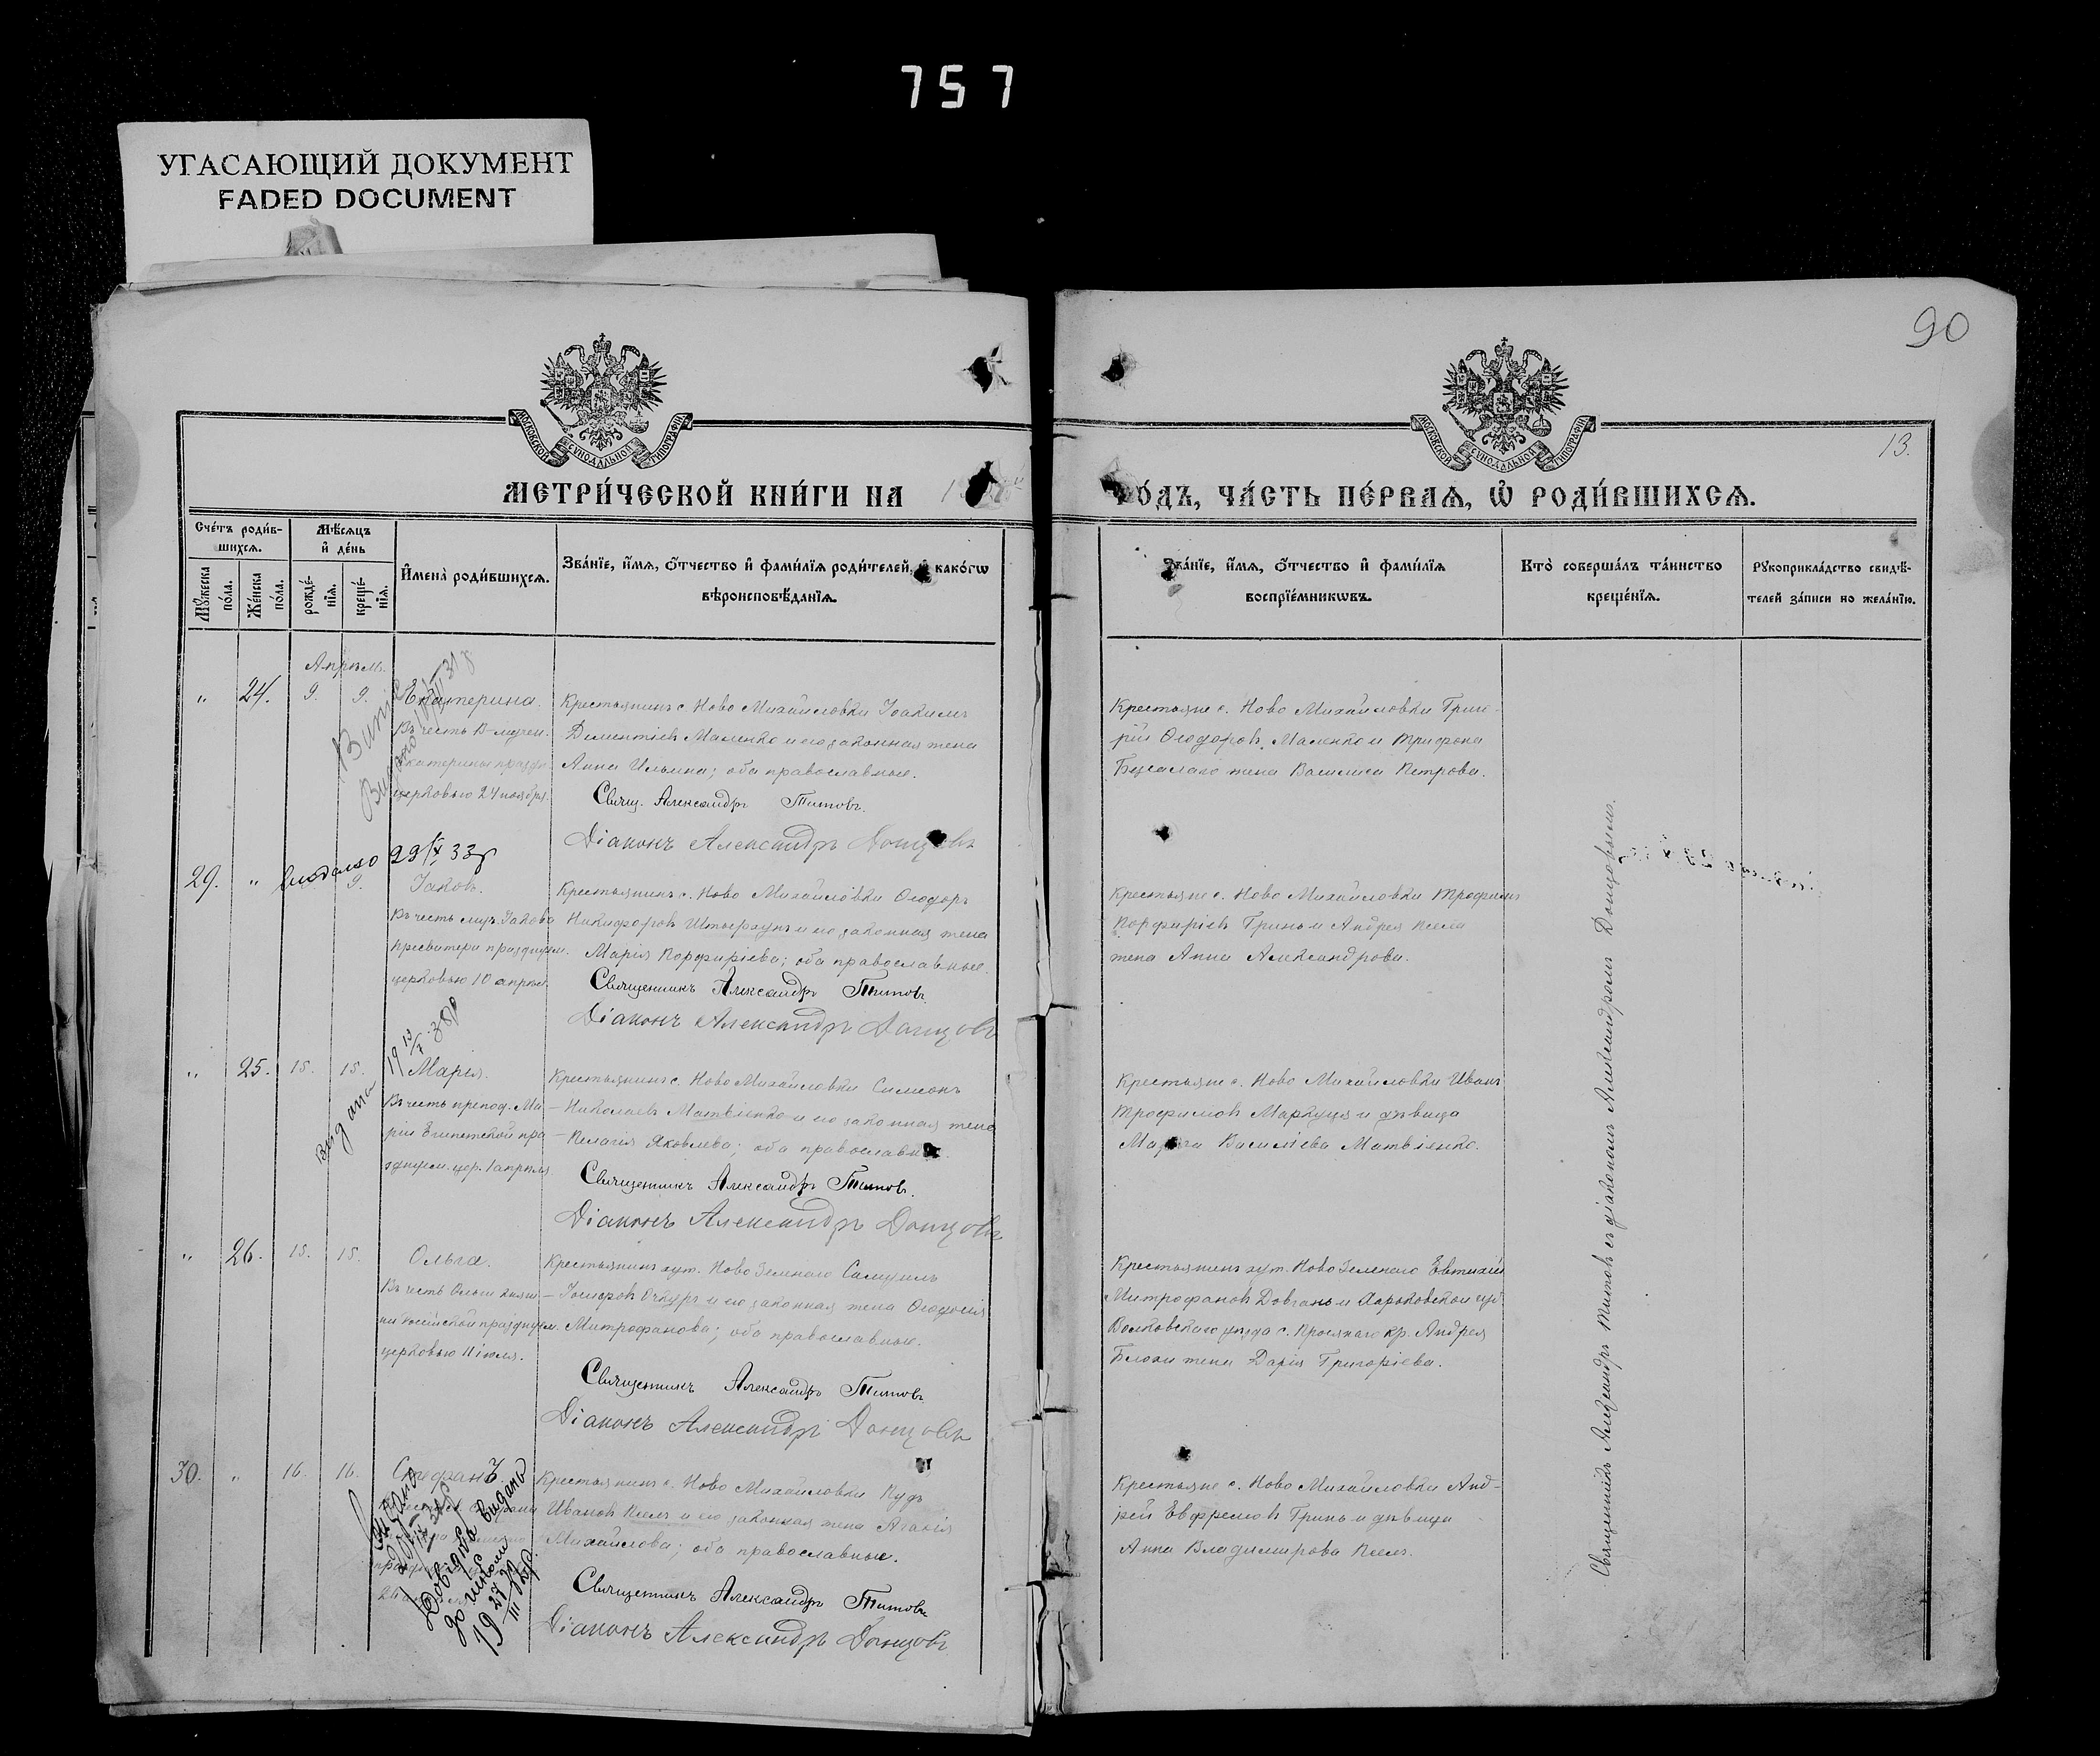 757
УГАСАЮЩИЙ ДОКУМЕНТ
FADED DOCUMENT
90
МОСКОВСКОЙ СѴНОДАЛЬНОЙ ТИПОГРАФІИ
МОСКОВСКОЙ СѴНОДАЛЬНОЙ ТИПОГРАФІИ
13.
МЕТРИ́ЧЕСКОЙ КНИ́ГИ НА
ГО́ДЪ, ЧА́СТЬ ПЕ́РВАѦ, Ѽ РОДИ́ВШИХСѦ.
Сче́тъ роди́в-
шихсѧ.
Мѣ́сѧцъ
и҆ де́нь
Мꙋ́жеска
по́ла.
Же́нска
по́ла.
рожде́-
нїѧ.
креще́-
нїѧ.
И҆мена̀ роди́вшихсѧ.
Зва́нїе, и҆́мѧ, ѻ҆́тчество и҆ фами́лїѧ роди́телей, и҆ како́гѡ
вѣроисповѣ́данїѧ.
Зва́нїе, и҆́мѧ, ѻ҆́тчество и҆ фами́лїѧ
воспрїе́мникѡвъ.
Кто̀ соверша́лъ та́инство
креще́нїѧ.
Рꙋкоприкла́дство свидѣ́-
телей за́писи по жела́нїю.
Апрѣль.
" 24. 9. 9. Екатерина.
Въ честь В-мучен.
Екатерины праздн.
церковью 24 ноября.
Крестьянинъ с. Ново Михайловки Іоакимъ
Дементіевъ Маленко и его законная жена
Анна Ильина; оба православные.
Свящ. Александръ Титовъ.
Діаконъ Александръ Донцовъ
Крестьяне с. Ново Михайловки Григо-
рій Ѳеодоровъ Маленко и Трифона
жена Василиса Петрова.
выдано 29/X 33 г
29. " 9. Іаковъ.
Въ честь муч. Іакова
пресвитера празднуем.
церковью 10 апрѣля
Крестьянинъ с. Ново Михайловки Ѳеодоръ
Никифоровъ и его законная жена
Марія Порфиріева; оба православные.
Священникъ Александръ Титовъ
Діаконъ Александръ Донцовъ
Крестьяне с. Ново Михайловки Трофимъ
Порфиріевъ Гринь и Андрея Кеела
жена Анна Александрова.
" 25. 15. 15. Марія.
Выдана
Въ честь препод. Ма-
ріи Египетской пра-
зднуем. цер. 1 апрѣля
Крестьянинъ с. Ново Михайловки Симеонъ
Николаевъ Матвіенко и его законная жена
Пелагія Яковлева; оба православн
Священникъ Александръ Титовъ.
Діаконъ Александръ Донцовъ
Крестьяне с. Ново Михайловки Иванъ
Трофимовъ Маркуця и дѣвица
Василіева Матвіенко.
" 26. 15. 15. Ольга.
Въ честь Ольги княги-
ни Россійской празднуем.
церковью 11 іюля.
Крестьянинъ хут. Ново Зеленаго Самуилъ
Іосифовъ Очкуръ и его законная жена Ѳеодосія
Митрофанова; оба православные.
Священникъ Александръ Титовъ
Діаконъ Александръ Донцовъ
Крестьянинъ хут. Ново Зеленаго Евтихій
Митрофановъ Довгань и Харьковской губ.
Волковского уѣзда с. Просянаго кр. Андрея
жена Дарія Григоріева.
30. " 16. 16. Стефанъ.
Довідка видана
до школи
19 27/III
Крестьянинъ с. Ново Михайловки
Ивановъ Кеелъ и его законная жена Агафія
Михайлова; оба православные.
Священникъ Александръ Титовъ
Діаконъ Александръ Донцовъ
Крестьяне с. Ново Михайловки Анд-
рей Евфремовъ Гринь и дѣвица
Анна Владимирова Кеелъ.
Священникъ Александръ Титовъ съ діакономъ Александромъ Донцовымъ.